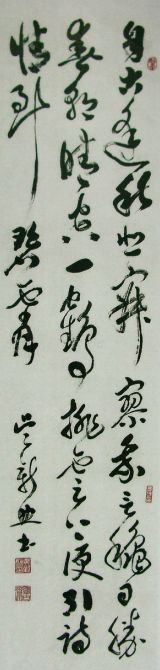 自古逢秋悲寂寥我言秋日勝
春朝晴空一鶴排雲上便引詩
情到碧霄
書